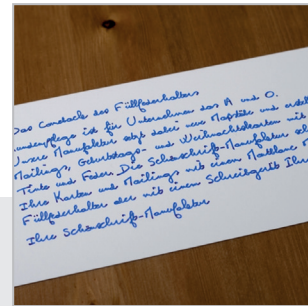 Das Comeback des Füllfederhalters
undenpflege ist für Unternehmen das A und O.
Unsere Manufaktur setzt dabei neue Maßstäbe und erstell
Mailings, Geburtstags- und Weihnachtskarten mit
Tinte und Feder. Die Schönschrift-Manufaktur sch
Ihre Karten und Mailings mit einem Montblanc M
Füllfederhalter oder mit einem Schreibgerät Ihre
Ihre Schönschrift-Manufaktur